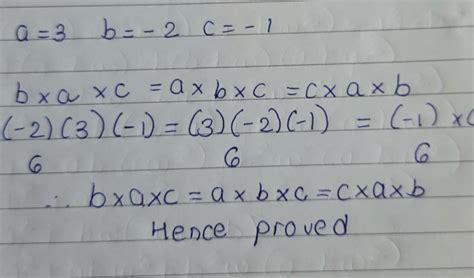 a=3 b=-2 c=-1
b×a×c = a×b×c = c×a×b
(-2)(3)(-1) = (3)(-2)(-1) = (-1)×
6 6 6
∴ b×a×c = a×b×c = c×a×b
Hence proved